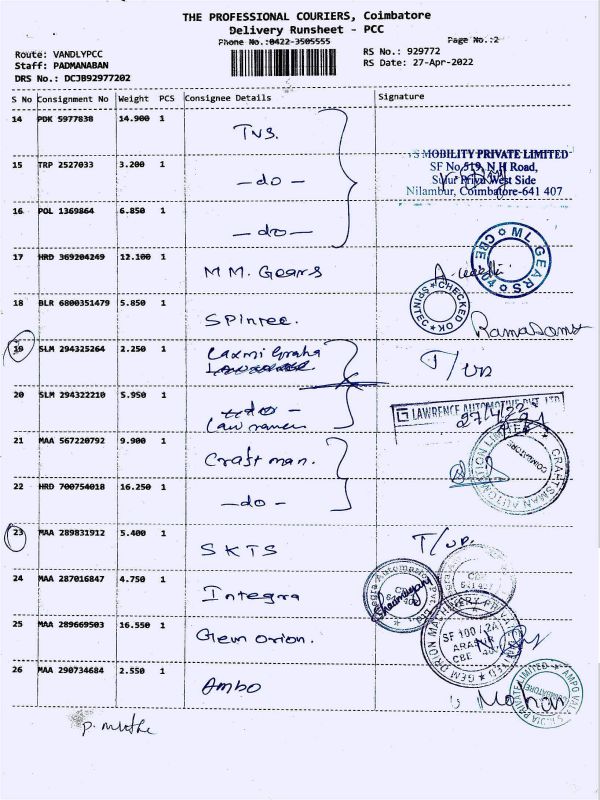 THE PROFESSIONAL COURIERS, Coimbatore
Delivery Runsheet - PCC
Phone No.:0422-3505555
Page No.:2
Route: VANDLYPCC
RS No.: 929772
Staff: PADMANABAN
RS Date: 27-Apr-2022
DRS No.: DCJB92977202
S No Consignment No Weight PCS Consignee Details Signature
14 PDK 5977838 14.900 1 TVS.
15 TRP 2527033 3.200 1 -do-
S MOBILITY PRIVATE LIMITED
SF No.519, N H Road,
West Side
Nilambur, Coimbatore-641 407
16 POL 1369864 6.850 1 -do-
17 HRD 369204249 12.100 1 M.M. Gears
ML GEARS CBE
18 BLR 6800351479 5.850 1 Spintec.
SPINTEC CHECKED OK
Ramasamy
19 SLM 294325264 2.250 1 Laxmi Graha T/up
20 SLM 294322210 5.950 1 -do-
Lawrence
LAWRENCE AUTOMOTIVE PVT. LTD
27/4/22
21 MAA 567220792 9.900 1 Craftman.
CRAFTSMAN AUTOMATION LIMITED
COIMBATORE
22 HRD 700754018 16.250 1 -do-
23 MAA 289831912 5.400 1 SKTS T/up.
24 MAA 287016847 4.750 1 Integra
Integra Automation
25 MAA 289669503 16.550 1 Gem orion.
GEM ORION MACHINERY PRIVATE LIMITED
SF 100/2A
ARASUR
CBE
26 MAA 290734684 2.550 1 Ambo
Mohan
AMPO VALVES INDIA PRIVATE LIMITED
COIMBATORE
P. Muthu